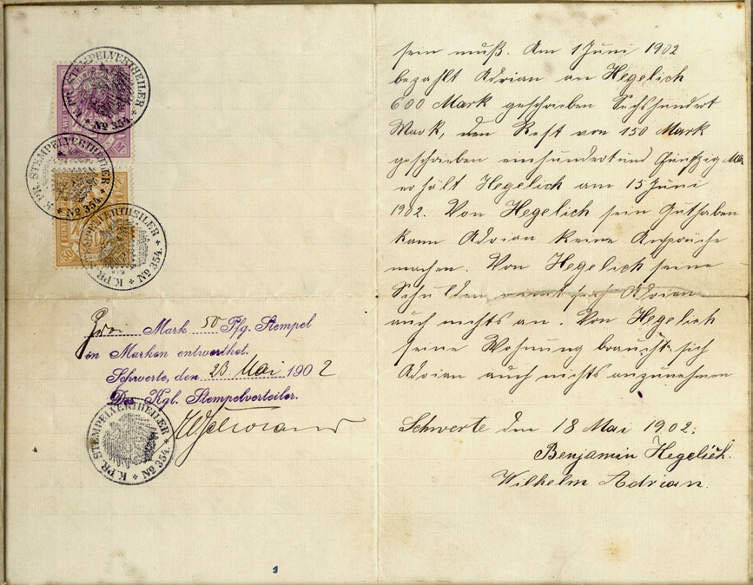 K. PR. STEMPELVERTHEILER
No 354.
K. PR. STEMPELVERTHEILER
No 354.
K. PR. STEMPELVERTHEILER
No 354.
Mark 50 Pfg. Stempel
in Marken entwerthet.
Schwerte, den 23 Mai 1902
Der Kgl. Stempelverteiler.
K. PR. STEMPELVERTHEILER
No 354.
sein muß. Am 1 Juni 1902
bezahlt Adrian an Hegelich
600 Mark geschrieben Sechshundert
Mark, den Rest von 150 Mark
geschrieben einhundertund Fünfzig Ma
erhält Hegelich am 15 Juni
1902. Von Hegelich sein Guthaben
kann Adrian keine Ansprüche
machen. Von Hegelich seine
Schulden Adrian
auch nichts an. Von Hegelich
seine Wohnung braucht sich
Adrian auch nichts anzunehmen
Schwerte den 18 Mai 1902.
Benjamin Hegelich.
Wilhelm Adrian.